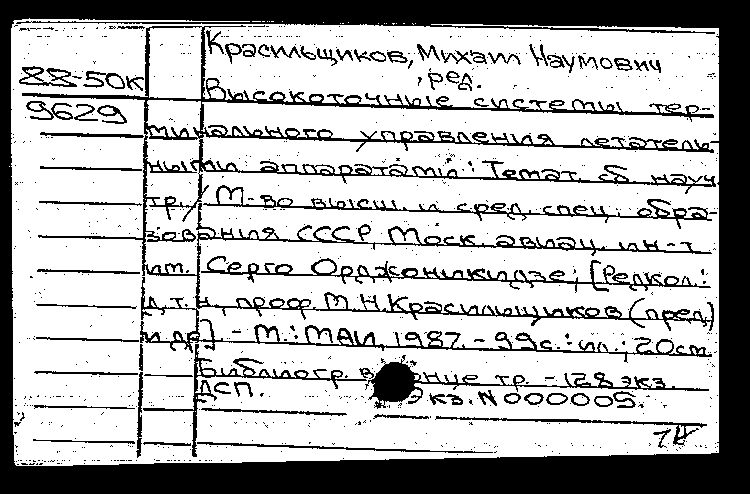 Красильщиков, Михаил Наумович
, ред.
88-50К
Высокоточные системы тер-
9629
минального управления летатель-
ными аппаратами : Темат. сб. науч.
тр. / М-во высш. и сред. спец. обра-
зования СССР, Моск. авиац. ин-т
им. Серго Орджоникидзе; [Редкол.:
д.т.н., проф. М.Н.Красильщиков (пред.)
и др.] - М. : МАИ, 1987. - 99с. : ил.; 20см.
Библиогр. в конце тр. - 128 экз.
ДСП. Экз. N 000005.